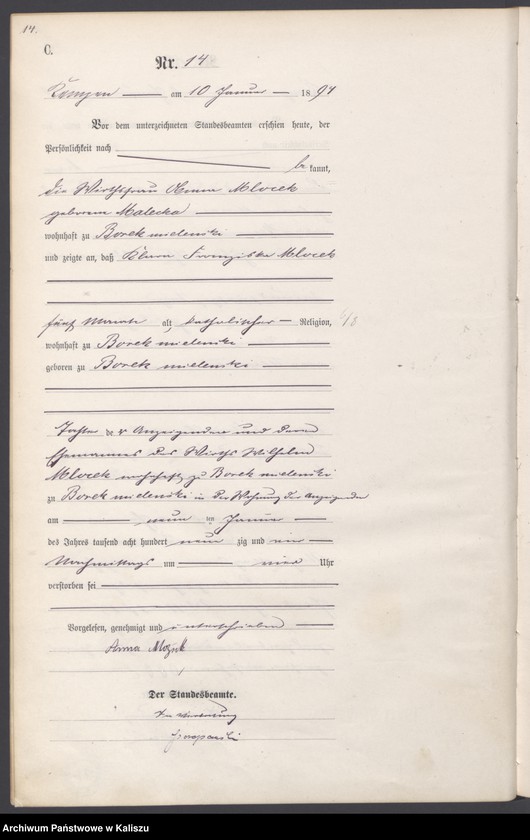 14.
C.
Nr. 14
Kempen am 10 Januar 1894
Vor dem unterzeichneten Standesbeamten erschien heute, der
Persönlichkeit nach
be kannt,
die Wirthsfrau Anna Mlocek
geborene Malecka
wohnhaft zu Borek mielenski
und zeigte an, daß Klara Franziska Mlocek
fünf Monate alt, katholischer Religion,
wohnhaft zu Borek mielenski
geboren zu Borek mielenski
Tochter der Anzeigenden und deren
Ehemannes des Wirths Wilhelm
Mlocek wohnhaft zu Borek mielenski
zu Borek mielenski in der Wohnung der Anzeigenden
am neun ten Januar
des Jahres tausend acht hundert neun zig und vier
Nachmittags um vier Uhr
verstorben sei
Vorgelesen, genehmigt und unterschrieben
Anna
Der Standesbeamte.
In Vertretung